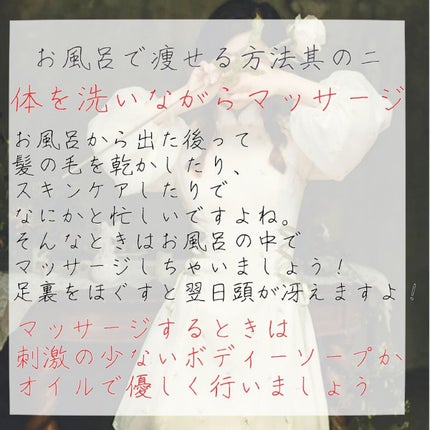 お風呂で痩せる方法其の二
体を洗いながらマッサージ
お風呂から出た後って
髪の毛を乾かしたり、
スキンケアしたりで
なにかと忙しいですよね。
そんなときはお風呂の中で
マッサージしちゃいましょう！
足裏をほぐすと翌日頭が冴えますよ！
マッサージするときは
刺激の少ないボディーソープか
オイルで優しく行いましょう